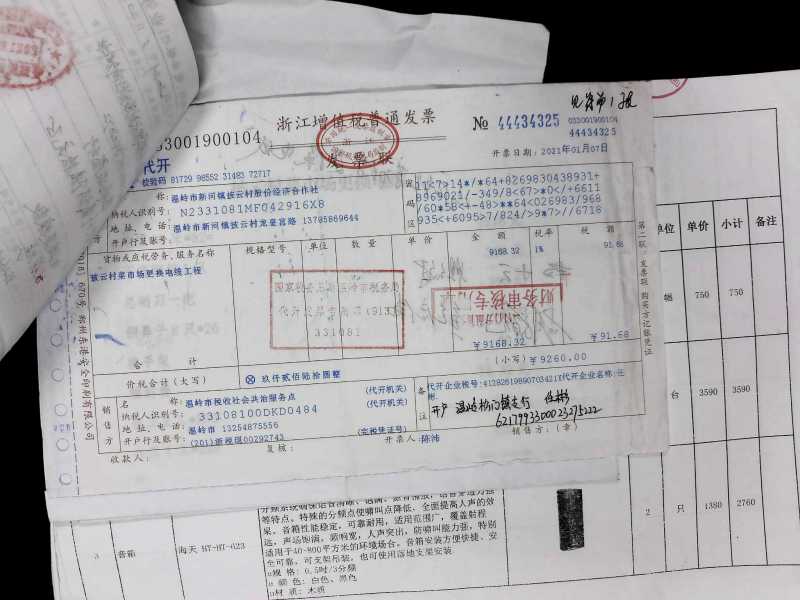 见第1报
033001900104
浙江增值税普通发票
发票联
№ 44434325
033001900104
44434325
代开
校验码 81729 98552 31483 72717
开票日期：2021年01月07日
名　　称：温岭市新河镇披云村股份经济合作社
纳税人识别号：N2331081MF042916X8
地址、电话：温岭市新河镇披云村龙皇宫路 13785869644
开户行及账号：
密码区
11<7>14*/*64+8269830438931+
8969021/-349/8<67>*0</+6611
/60*58<+-48>**64<026983/968
935<+6095>7/824/>9*7>//6718
货物或应税劳务、服务名称
规格型号
单位
数量
单价
金额
税率
税额
披云村菜市场更换电缆工程
9168.32
1%
91.68
国家税务总局温岭市税务局
代开发票专用章
331081
财务审核专
合　计
￥9168.32
￥91.68
价税合计（大写）
玖仟贰佰陆拾圆整
（小写）￥9260.00
销售方
名　　称：温岭市税收社会共治服务点
（代开机关）
纳税人识别号：33108100DKD0484
（代开机关）
地址、电话：温岭市 13254875556
开户行及账号：(201)浙税缴00292743
（完税凭证号）
备注
代开企业税号：41282619890703421Y代开企业名称：任
彬
开户 温岭松门镇支行 任彬
6217993300023275222
收款人：
复核：
开票人：陈沛
销售方：（章）
第二联 发票联 购买方记账凭证
670号 郑州东港安全印刷有限公司
单位
单价
小计
备注
750
750
台
3590
3590
2
只
1380
2760
3
音箱
海天 HT-HT-623
等特点。特殊的分频点使啸叫点降低、全面提高人声的效
果，音箱性能稳定，可靠耐用，适用范围广，覆盖射程
远，声场饱满，频响宽，人声突出，防啸叫能力强，特别
适用于40-800平方米的环境场台。音箱安装方便快捷、安
全可靠，可支架吊装，也可使用落地支架安装
规 格：6.5吋/3分频
颜 色：白色、黑色
材 质：木质